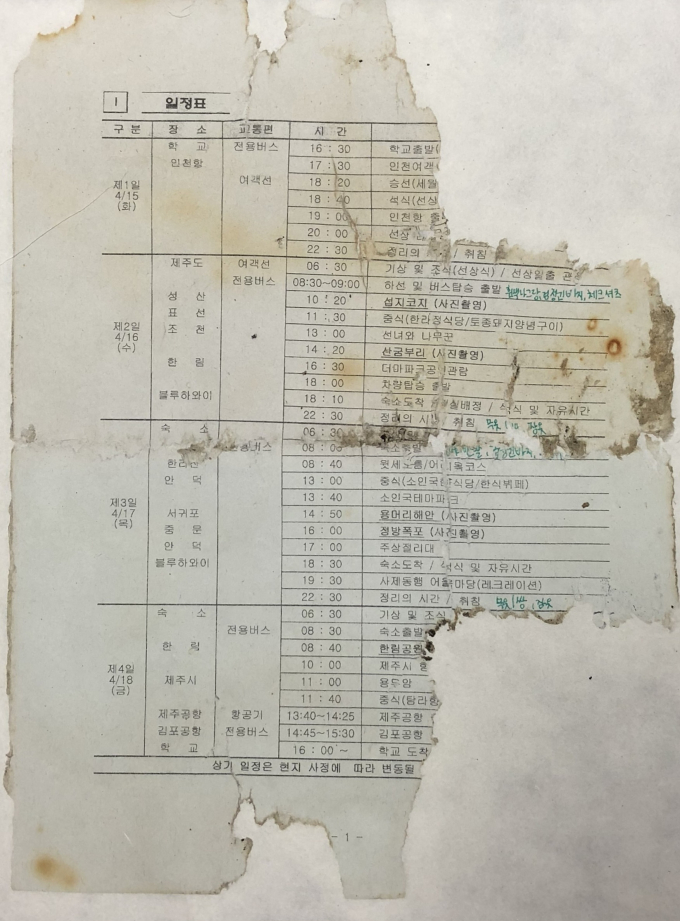 1 일정표
구 분 장 소 교통편 시 간
제1일 4/15 (화)
학 교 전용버스 16 : 30 학교출발(
인천항 17 : 30 인천여객
여객선 18 : 20 승선(세월
18 : 40 석식(선상
19 : 00 인천항 출
20 : 00 선상
22 : 30 정리의 / 취침
제2일 4/16 (수)
제주도 여객선 06 : 30 기상 및 조식(선상식) / 선상일출 관
전용버스 08:30~09:00 하선 및 버스탑승 출발
성 산 10 : 20 섭지코지 (사진촬영)
표 선 11 : 30 중식(한라정식당/토종돼지양념구이)
조 천 13 : 00 선녀와 나무꾼
14 : 20 산굼부리 (사진촬영)
한 림 16 : 30 더마파크공 관람
18 : 00 차량탑승 출발
블루하와이 18 : 10 숙소도착 / 실배정 / 석식 및 자유시간
22 : 30 정리의 시 취침
제3일 4/17 (목)
숙 소 06 : 30
전용버스 08 : 00 숙소출발
한라산 08 : 40 윗세오름/어 목코스
안 덕 13 : 00 중식(소인국 식당/한식뷔페)
13 : 40 소인국테마파크
서귀포 14 : 50 용머리해안 (사진촬영)
중 문 16 : 00 정방폭포 (사진촬영)
안 덕 17 : 00 주상절리대
블루하와이 18 : 30 숙소도착 / 석식 및 자유시간
19 : 30 사제동행 어울마당(레크레이션)
22 : 30 정리의 시간 / 취침
제4일 4/18 (금)
숙 소 06 : 30 기상 및 조식
전용버스 08 : 30 숙소출발
한 림 08 : 40 한림공원
10 : 00 제주시
제주시 11 : 00 용두암
11 : 40 중식(탐라
제주공항 항공기 13:40~14:25 제주공항
김포공항 전용버스 14:45~15:30 김포공항
학 교 16 : 00 ~ 학교 도착
상기 일정은 현지 사정에 따라 변동될
- 1 -